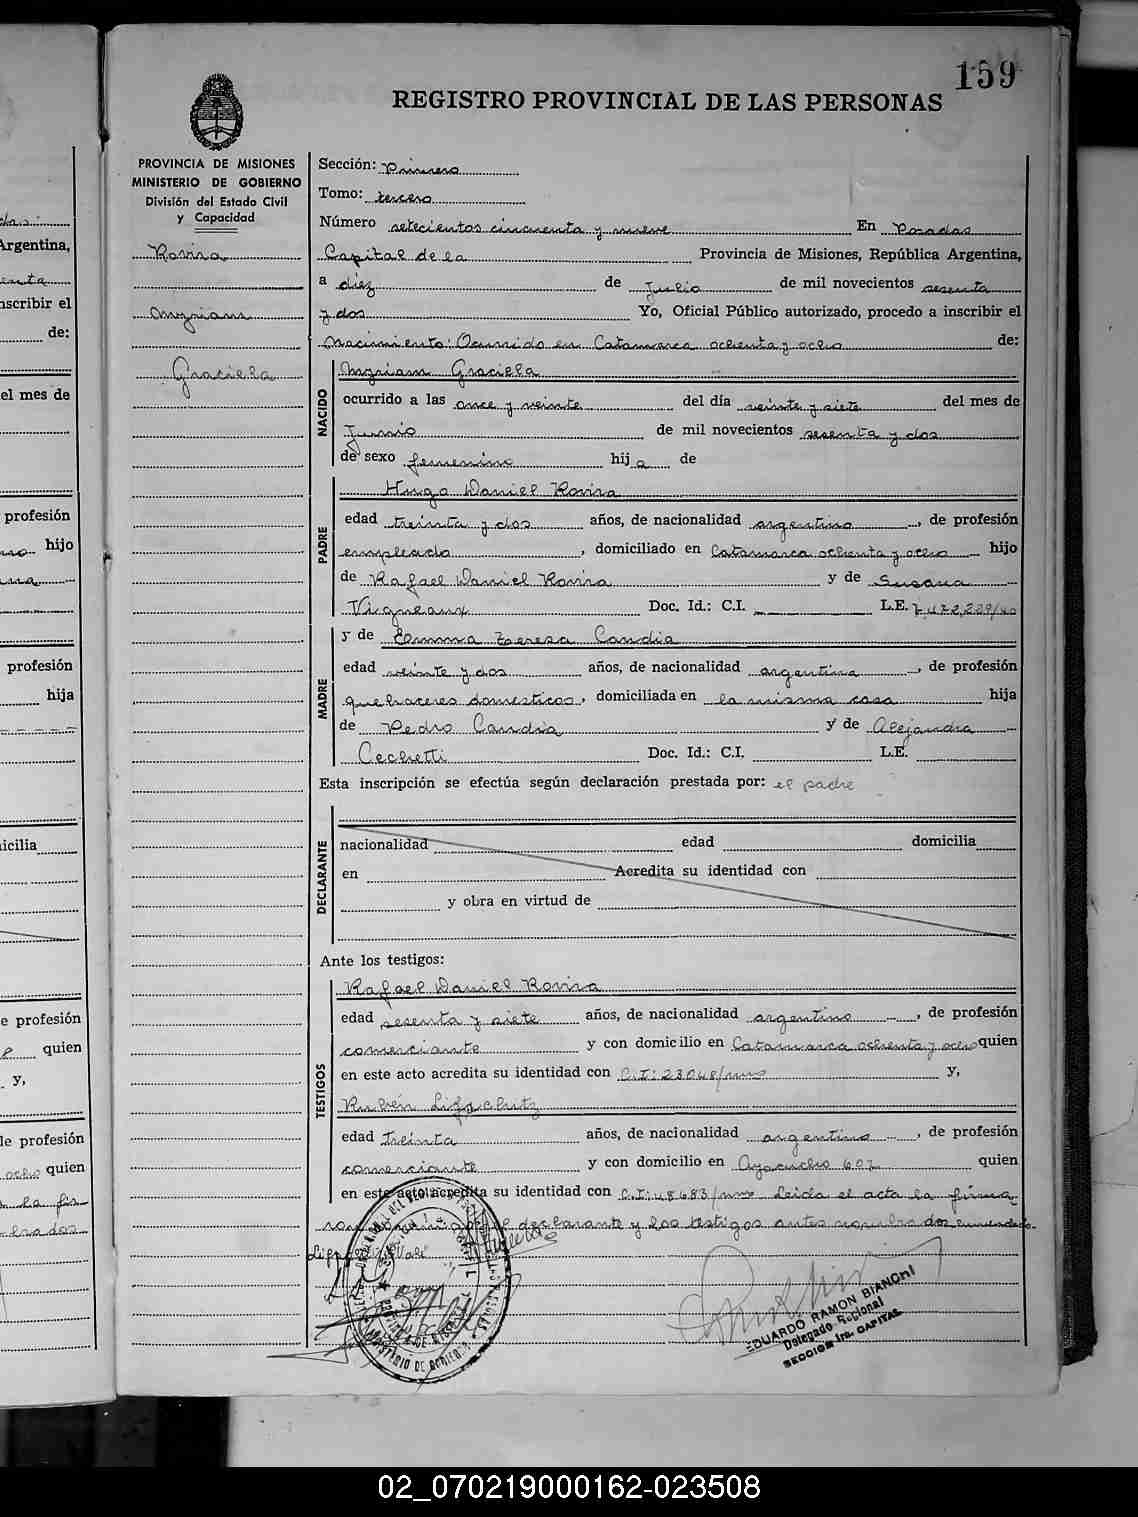 159
REGISTRO PROVINCIAL DE LAS PERSONAS
PROVINCIA DE MISIONES
MINISTERIO DE GOBIERNO
División del Estado Civil
y Capacidad
Rovira
Myriam
Graciela
Sección: Primera
Tomo: tercero
Número setecientos cincuenta y nueve En Posadas
Capital de la Provincia de Misiones, República Argentina,
a diez de Julio de mil novecientos sesenta
y dos Yo, Oficial Público autorizado, procedo a inscribir el
Nacimiento: Ocurrido en Catamarca ochenta y ocho de:
NACIDO
Myriam Graciela
ocurrido a las once y veinte del día veinte y siete del mes de
Junio de mil novecientos sesenta y dos
de sexo femenino hija de
PADRE
Hugo Daniel Rovira
edad treinta y dos años, de nacionalidad argentino, de profesión
empleado, domiciliado en Catamarca ochenta y ocho hijo
de Rafael Daniel Rovira y de Susana
Vigneaux Doc. Id.: C.I. L.E. 7.472.229/40
MADRE
y de Emma Teresa Candia
edad veinte y dos años, de nacionalidad argentina, de profesión
quehaceres domesticos, domiciliada en la misma casa hija
de Pedro Candia y de Alejandra
Cechetti Doc. Id.: C.I. L.E.
Esta inscripción se efectúa según declaración prestada por: el padre
DECLARANTE
nacionalidad edad domicilia
en Acredita su identidad con
y obra en virtud de
Ante los testigos:
TESTIGOS
Rafael Daniel Rovira
edad sesenta y siete años, de nacionalidad argentino, de profesión
comerciante y con domicilio en Catamarca ochenta y ocho quien
en este acto acredita su identidad con C.I: 23048/mnes y,
Rubén Lifschutz
edad treinta años, de nacionalidad argentino, de profesión
comerciante y con domicilio en Ayacucho 607 quien
en este acto acredita su identidad con C.I: 48683/mnes Leida el acta la firma
declarante y los testigos antes nombrados enmendado
Vale
EDUARDO RAMON BIANCHI
Delegado Regional
SECCION 1ra. CAPITAL
Argentina,
inscribir el
de:
el mes de
profesión
hijo
profesión
hija
icilia
e profesión
quien
y,
de profesión
ocho quien
02_070219000162-023508